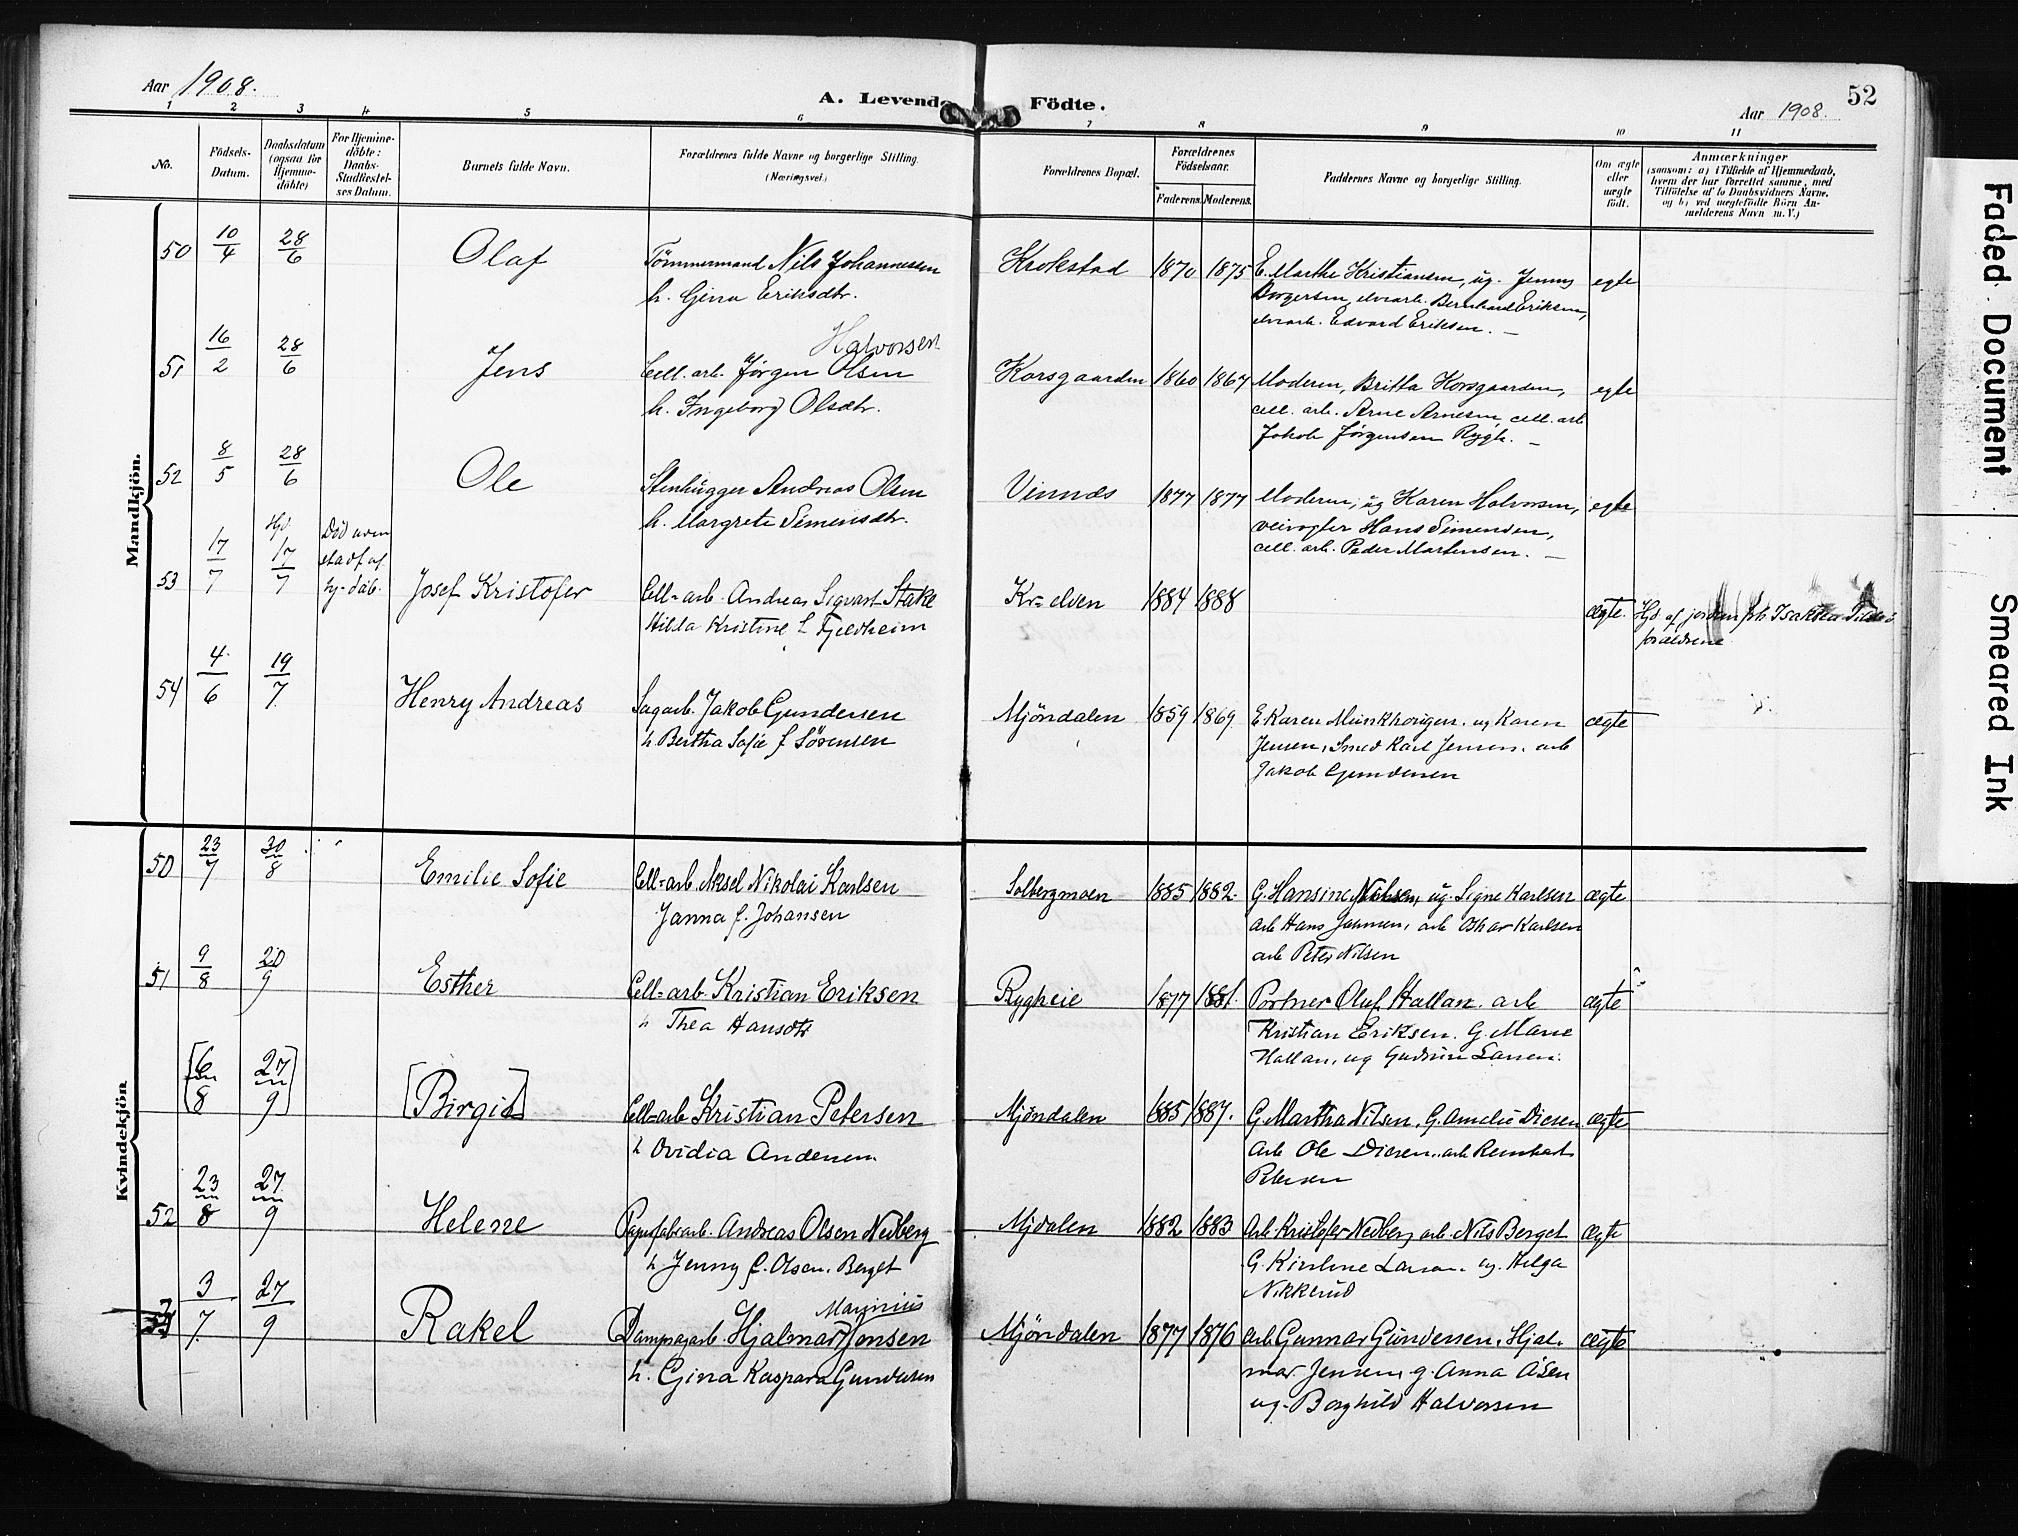 Aar 1908.
A. Levende Födte.
Aar 1908.
52
1 2 3 4 5 6 7 8 9 10 11
No.
Födsels-
Datum.
Daabsdatum
(ogsaa for
Hjemme-
döbte)
For Hjemme-
döbte:
Daabs-
Stadfæstel-
ses Datum.
Barnets fulde Navn.
Forældrenes fulde Navne og borgerlige Stilling.
(Næringsvei)
Forældrenes Bopæl.
Forældrenes
Födselsaar.
Faderens. Moderens.
Faddernes Navne og borgerlige Stilling.
Om ægte
eller
uægte
födt.
Anmærkninger
(saasom: a) i Tilfælde af Hjemmedaab,
hvem der har forrettet samme, med
Tilföielse af to Daabsvidners Navne.
og b) ved uægtefödte Börn An-
melderens Navn m. V.)
Mandkjön.
50 10/4 28/6 Olaf Tömmermand Nils Johannesen Krokstad 1870 1875 E. Marthe Kristiansen, ug. Jenny egte
h. Gina Eriksdtr. Borgersen, elvearb. Bernhard Eriksen,
elvearb. Edvard Eriksen. —
Halvorsen
51 16/2 28/6 Jens Cell. arb. Jørgen Olsen Korsgaarden 1860 1867 Moderen, Britta Korsgaarden, egte
h. Ingeborg Olsdtr. cell. arb. Arne Arnesen, cell. arb
Jakob Jørgensen Rygh. —
52 8/5 28/6 Ole Stenhugger Andreas Olsen Vinnæs 1877 1877 Moderen, ug Karen Halvorsen, egte
h. Margrete Simensdtr. veivogter Hans Simensen,
cell. arb. Peder Martinsen. —
53 17/7 Hjd. 17/7 Död uden
stadf. af
hj-daab. Josef Kristofer Cell-arb. Andreas Sigvart Stake Kr-elven 1884 1888 ægte Hjd af jordm frk Isaksen
Hilda Kristine f. Fjeldheim forældrene
54 4/6 19/7 Henry Andreas Sagarb. Jakob Gundersen Mjöndalen 1859 1869 E. Karen Munkhaugen. ug Karen ægte
h. Bertha Sofie f Sörensen Jensen, Smed Karl Jensen. arb
Jakob Gundersen
Kvindekjön.
50 23/7 30/8 Emilie Sofie Cell-arb. Aksel Nikolai Karlsen Solbergmoen 1885 1882 G. Hansine Nilsen, ug. Signe Karlsen ægte
Janna f. Johansen arb Hans Jahnsen, arb Oskar Karlsen
arb Peter Nilsen
51 9/8 20/9 Esther Cell-arb. Kristian Eriksen Rygheie 1877 1881. Portner Oluf Hallan. arb ægte
h Thea Hansdtr Kristian Eriksen. G. Marie
Hallan, ug Gudrun Larsen.
[6/8 27/9] [Birgit] Cell-arb Kristian Petersen Mjöndalen 1885 1887. G. Martha Nilsen, G. Amelie Diesen ægte
h Ovidia Andersen. arb Ole Diesen, arb Reinhart
Petersen
52 23/8 27/9 Helene Papirfabarb. Andreas Olsen Nedberg Mjdalen 1882 1883 Arb Kristofer Nedberg arb. Nils Berget ægte
h Jenny f. Olsen. Berget G. Kirstine Larsen. ug. Helga
Nikkerud
Marinius
3/7 27/9 Rakel Dampsagarb. Hjalmar Jensen Mjöndalen 1877 1876 arb Gunnar Gundersen, Hjal- ægte
h. Gina Kaspara Gundersen mar Jensen, g. Anna Åsen
ug. Borghild Halvorsen
Faded Document
Smeared Ink